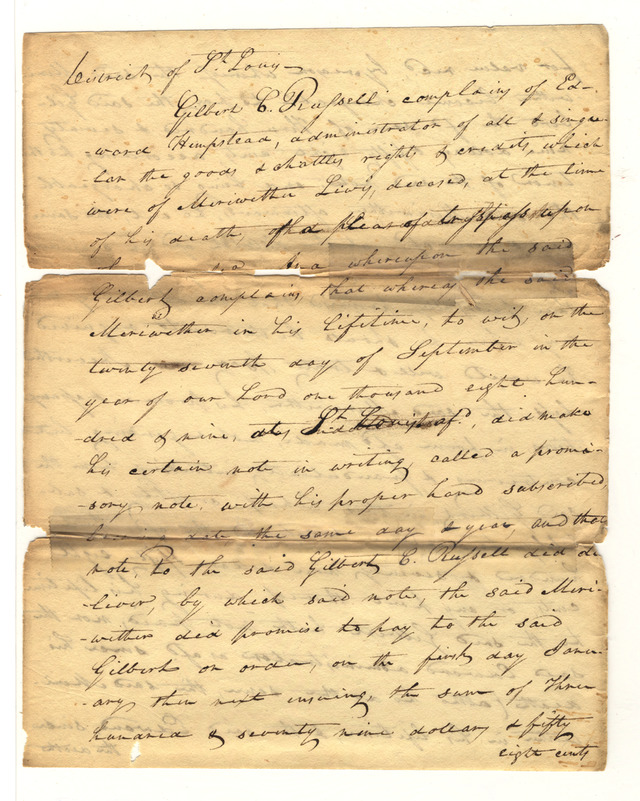 District of St Louis
Gilbert C. Russell complains of Ed-
-ward Hempstead, administrator of all & singu-
lar the goods & chattles rights & credits, which
were of Meriwether Lewis, deceased, at the time
of his death, of a plea of trespass upon
whereupon the said
Gilbert complains, that whereas the said
Meriwether in his lifetime, to wit, on the
twenty seventh day of September in the
year of our Lord one thousand eight hun-
dred & nine, at St Louis afd, did make
his certain note in writing called a promis-
-sory note, with his proper hand subscribed,
bearing date the same day & year, and that
note, to the said Gilbert C. Russell did de
-liver, by which said note, the said Meri-
-wither did promise to pay to the said
Gilbert or order, on the first day Janu-
-ary then next insuing, the sum of Three
hundred & seventy nine dollars & fifty
eight cents